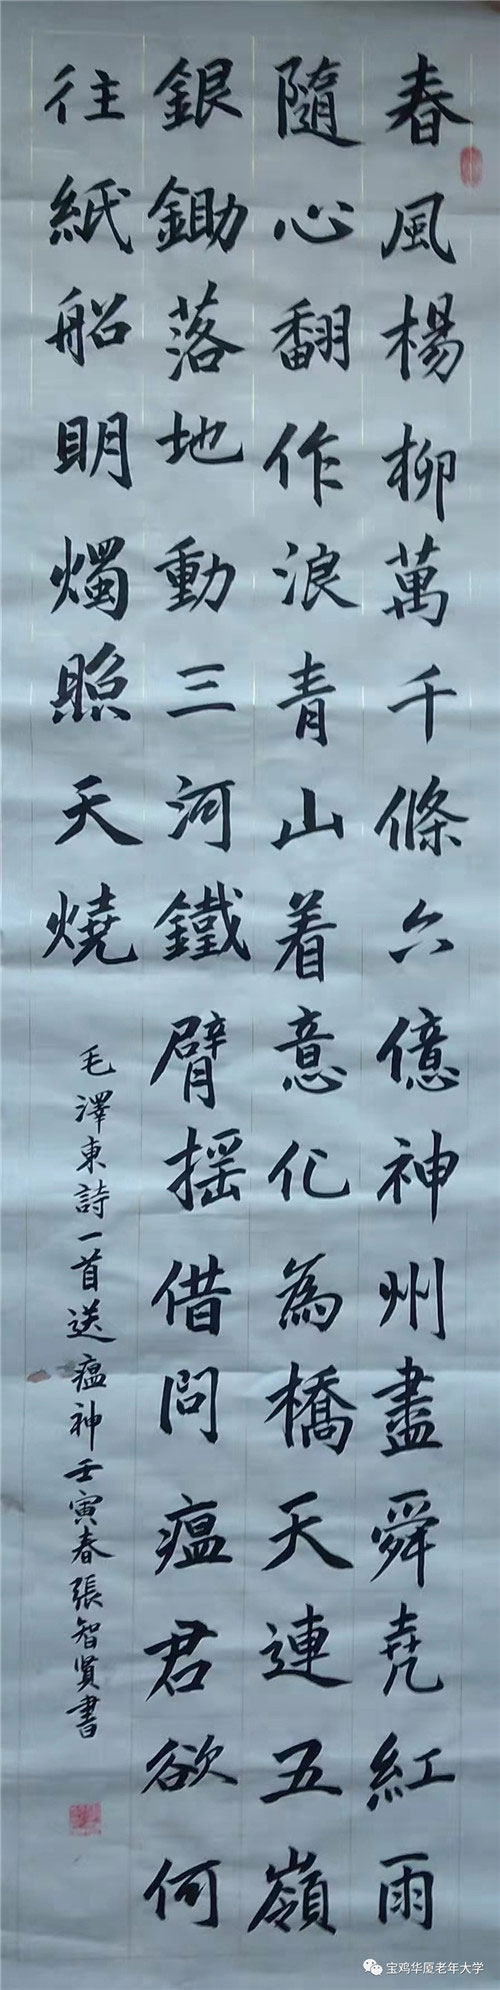 春風楊柳萬千條六億神州盡舜堯紅雨
隨心翻作浪青山着意化為橋天連五嶺
銀鋤落地動三河鐵臂摇借問瘟君欲何
往紙船明燭照天燒
毛澤東詩一首送瘟神壬寅春張智賢書
宝鸡华厦老年大学